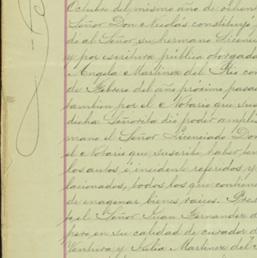 Octubre del mismo año de ochenta
Señor Don Nicolás constituyó
do al Señor su hermano Licencia
y por escritura pública otorgada
Angela Martinez del Rio con
de Febrero del año próximo pasado
tambien por el Notario que sus
dicha Señorita dió poder amplio
mano el Señor Licenciado Don
el Notario que suscribe haber
los autos é incidente referidos y
lacionados, todos los que contiene
de enagenar bienes raices.
el Señor Juan Fernandez
pero en su calidad de curador de
Ventura y Julia Martinez del